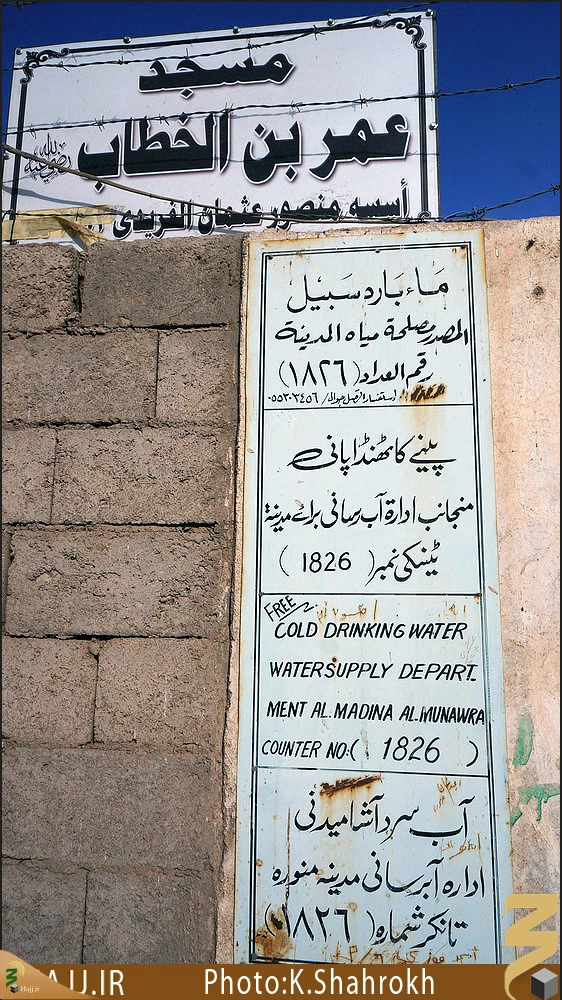 مسجد
عمر بن الخطاب
رضي الله عنه
أسسه منصور عثمان الفريدي
ماء بارد سبيل
المصدر مصلحة مياه المدينة
رقم العداد (١٨٢٦)
پینے کا ٹھنڈا پانی
منجانب ادارۃ آب رسانی برائے مدینۃ
ٹینکی نمبر ( 1826 )
FREE
COLD DRINKING WATER
WATERSUPPLY DEPART.
MENT AL.MADINA AL.MUNAWRA
COUNTER NO:( 1826 )
آب سرد آشامیدنی
اداره آبرسانی مدینه منوره
تانکر شماره (١٨٢٦)
HAJJ.IR
Hajj.ir
Photo:K.Shahrokh